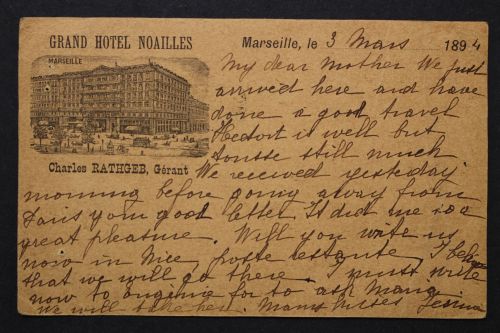 GRAND HOTEL NOAILLES
MARSEILLE
Charles RATHGEB, Gérant
Marseille, le 3 Mars 1894
My dear mother We just
arrived here and have
done a good travel
Hector is well but
tousse still much
We received yesterday
morning before going away from
Paris your good letter. It did me a
great pleasure. Will you write us
now in Nice, poste restante, I belie
that we will go there. I must write
now to Eugenie for to ask Maria
we will take her. Many kisses